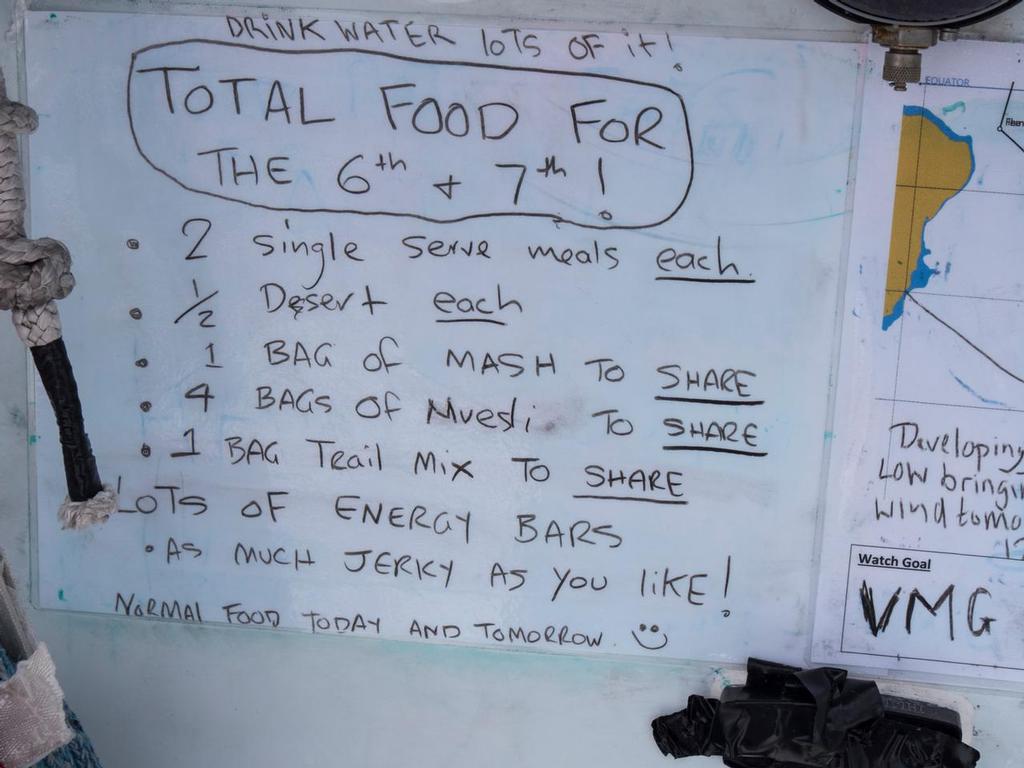 DRINK WATER LOTS OF iT!
TOTAL FOOD FOR
THE 6th + 7th!
• 2 single serve meals each.
• 1/2 Desert each
• 1 BAG of MASH TO SHARE
• 4 BAGS OF Muesli TO SHARE
• 1 BAG Trail Mix TO SHARE
LOTS OF ENERGY BARS
• AS MUCH JERKY AS YOU liKE!
NORMAL FOOD TODAY AND TOMORROW.
EQUATOR
Developing
LOW bringin
wind tomo
Watch Goal
VMG